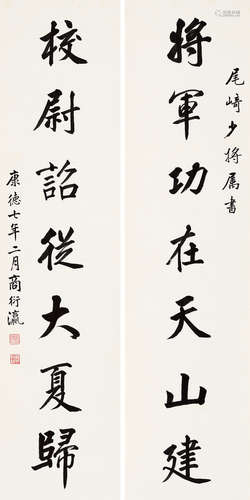 尾崎少将属書
將軍功在天山建
校尉詔從大夏歸
康德七年二月商衍瀛